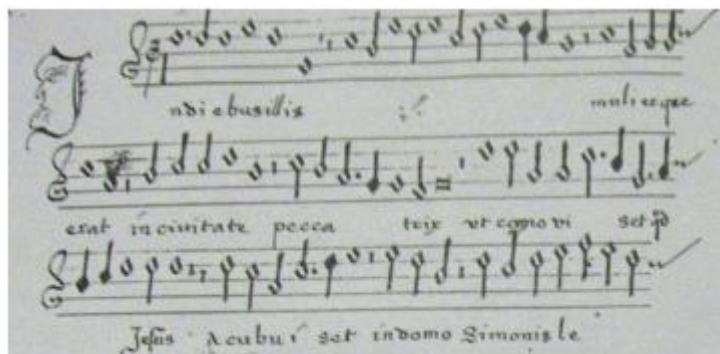 Indiebusillis ij mulierque
erat in ciuitate pecca trix vt comovi set qd
Jesus Acubuí set indomo Simonis le